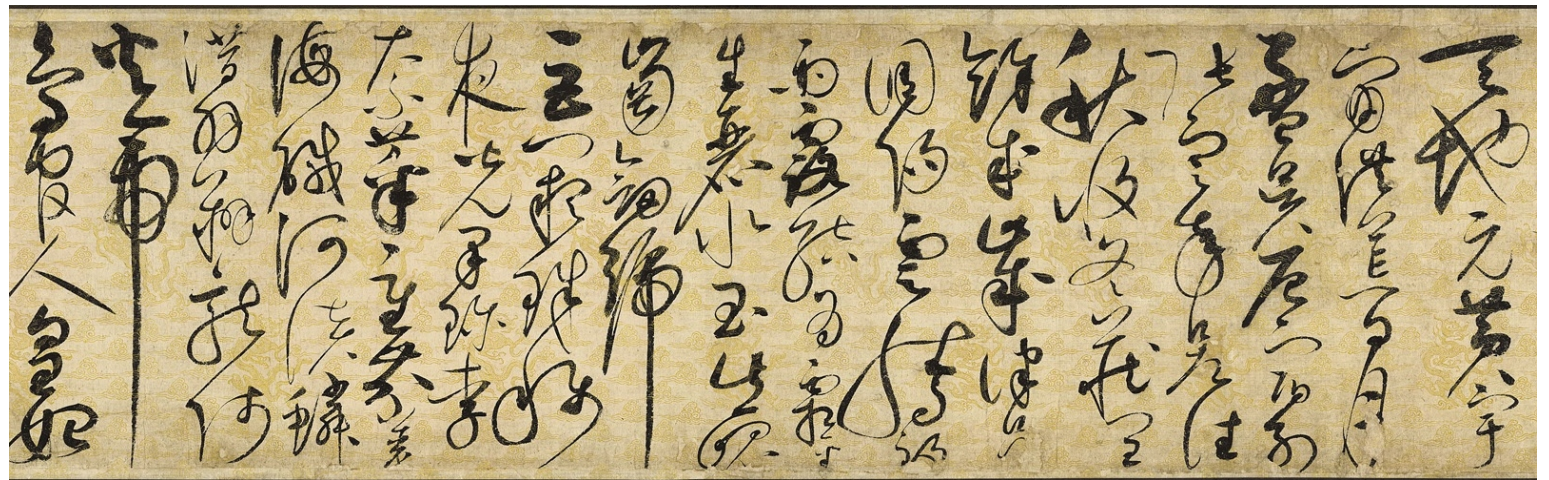 天地元黃宇
宙洪荒日月
盈昃辰宿列
張寒來暑往
秋收冬藏閏
餘成歲律呂
調陽雲騰致
雨露結為霜金
生麗水玉出崑
岡劍號
巨闕珠稱
夜光果珍李
柰菜重芥薑
海鹹河淡鱗
潛羽翔龍師
火帝
鳥官人皇始